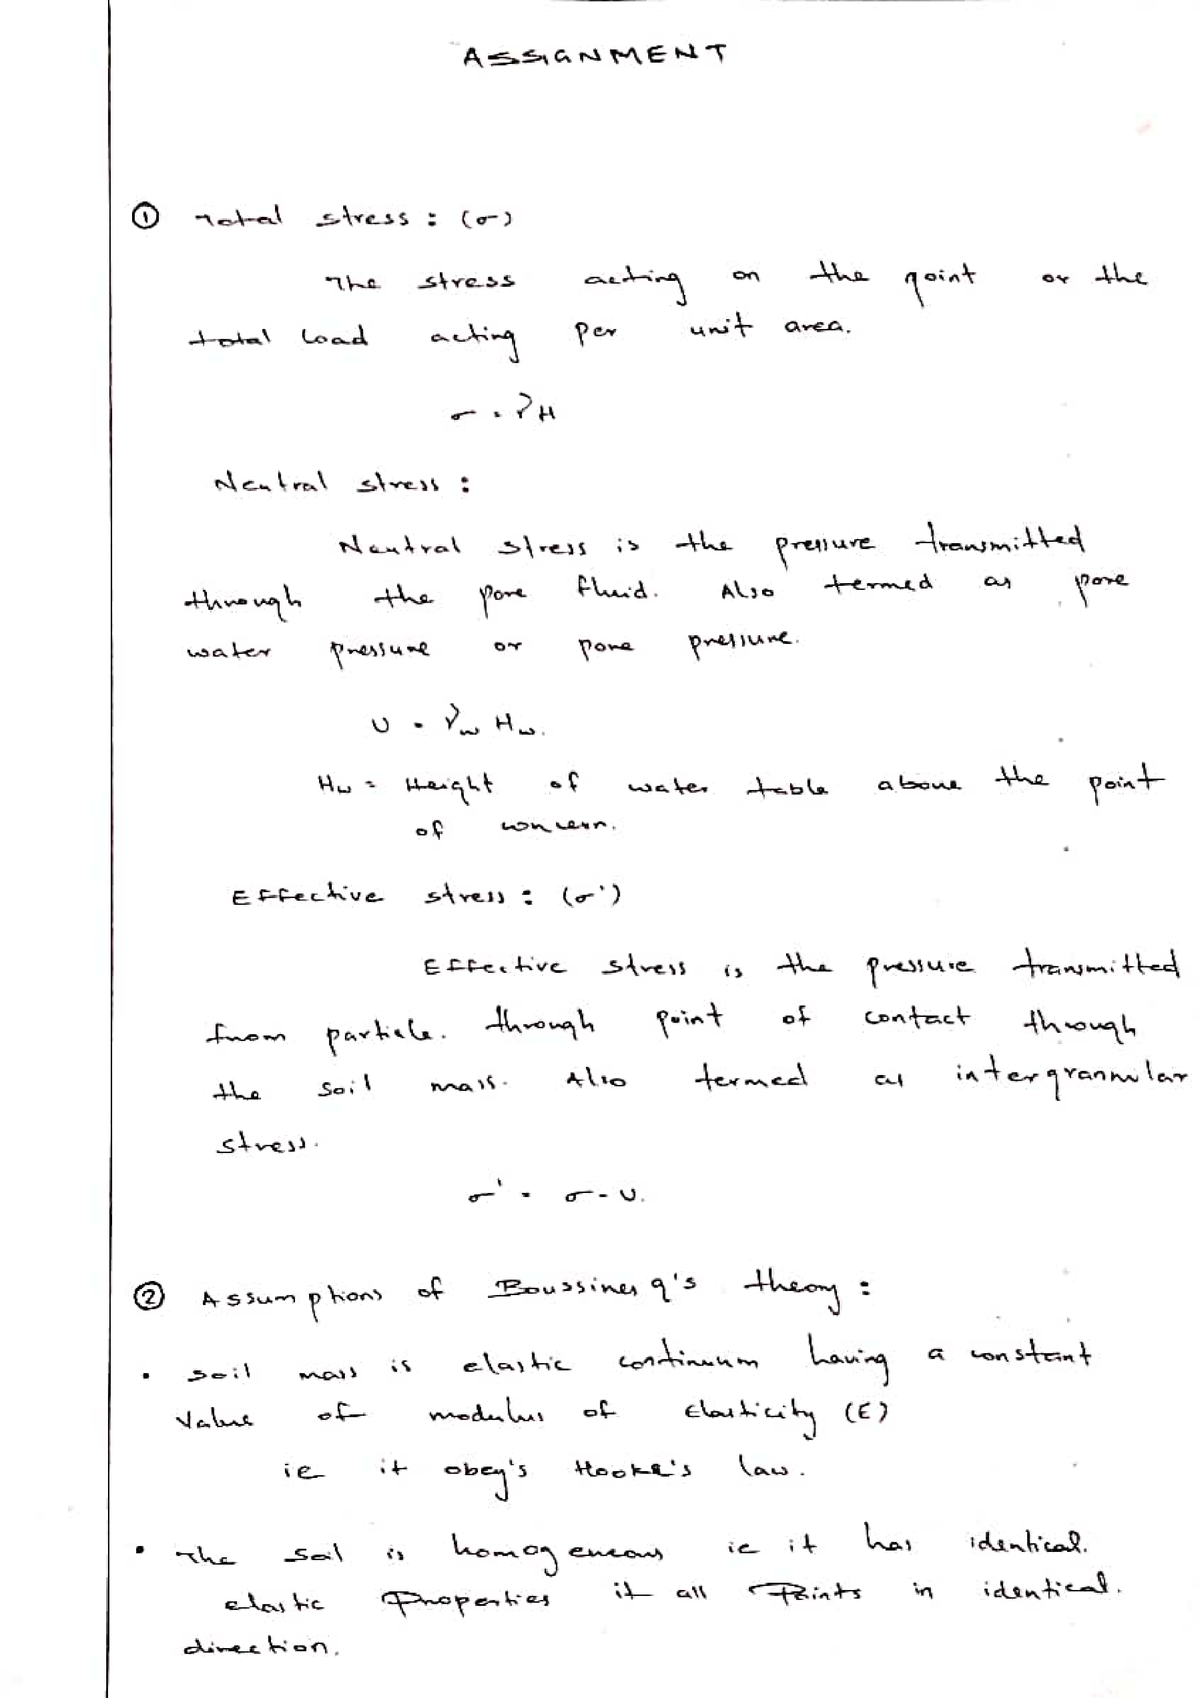 ASSIGNMENT
① Total stress : (σ)
The stress acting on the point or the
total load acting per unit area.
σ = γH
Neutral stress :
Neutral stress is the pressure transmitted
through the pore fluid. Also termed as pore
water pressure or pore pressure.
U = γw Hw.
Hw = Height of water table above the point
of concern.
Effective stress : (σ')
Effective stress is the pressure transmitted
from particle. through point of contact through
the soil mass. Also termed as intergrannular
stress.
σ' = σ - U.
② Assumptions of Boussinesq's theory :
• Soil mass is elastic continuum having a constant
value of modulus of Elasticity (E)
ie it obey's Hooke's law.
• The soil is homogeneous ie it has identical.
elastic Properties it all Points in identical.
direction.